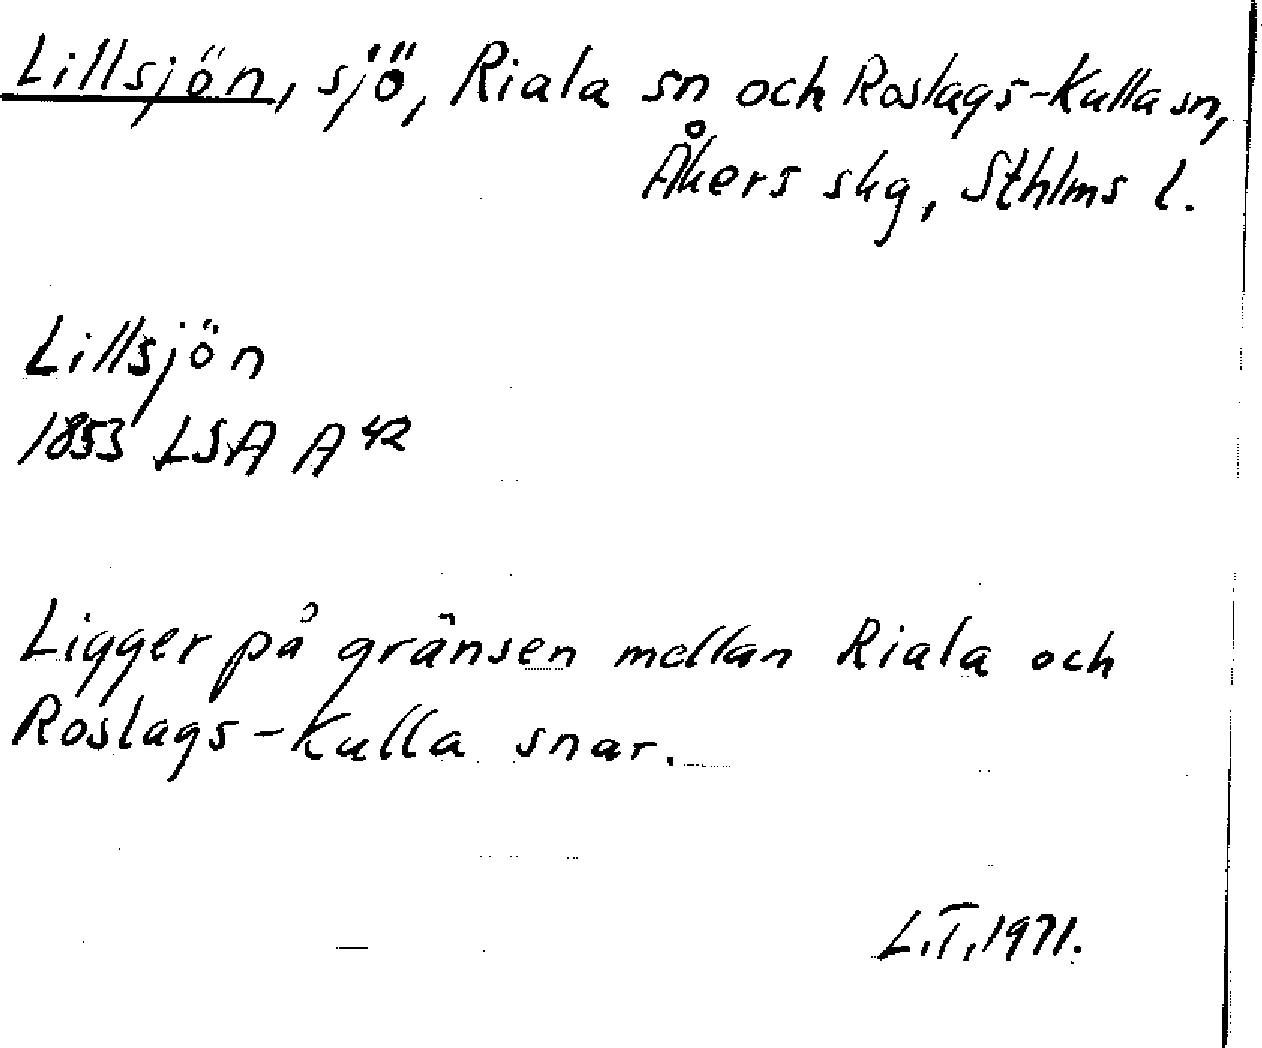 Lillsjön, sjö, Riala sn och Roslags-Kulla sn,
Åkers skg, Sthlms l.
Lillsjön
1853 LSA A 42
Ligger på gränsen mellan Riala och
Roslags-Kulla snar.
L.T. 1971.